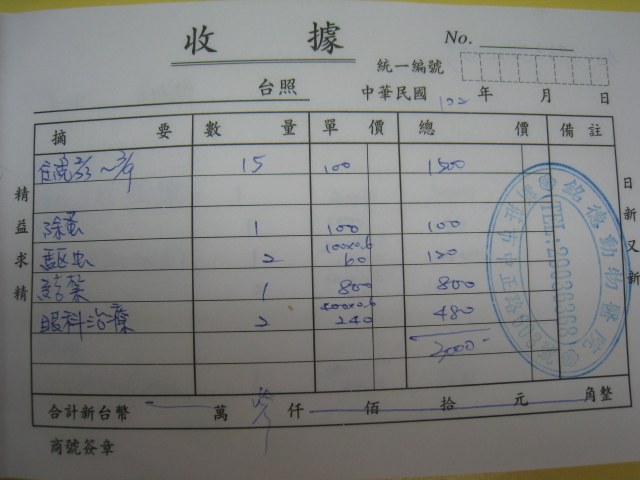 收據
No.
統一編號
台照
中華民國 102 年 月 日
摘要 數量 單價 總價 備註
住院 2/23~3/9 15 100 1500
除蚤 1 100 100
驅虫 2 100x0.6 60 120
給藥 1 800 800
眼科治療 2 400x0.6 240 480
3,000-
合計新台幣 萬 仟 佰 拾 元 角整
商號簽章
精益求精
日新又新
銘德動物醫院